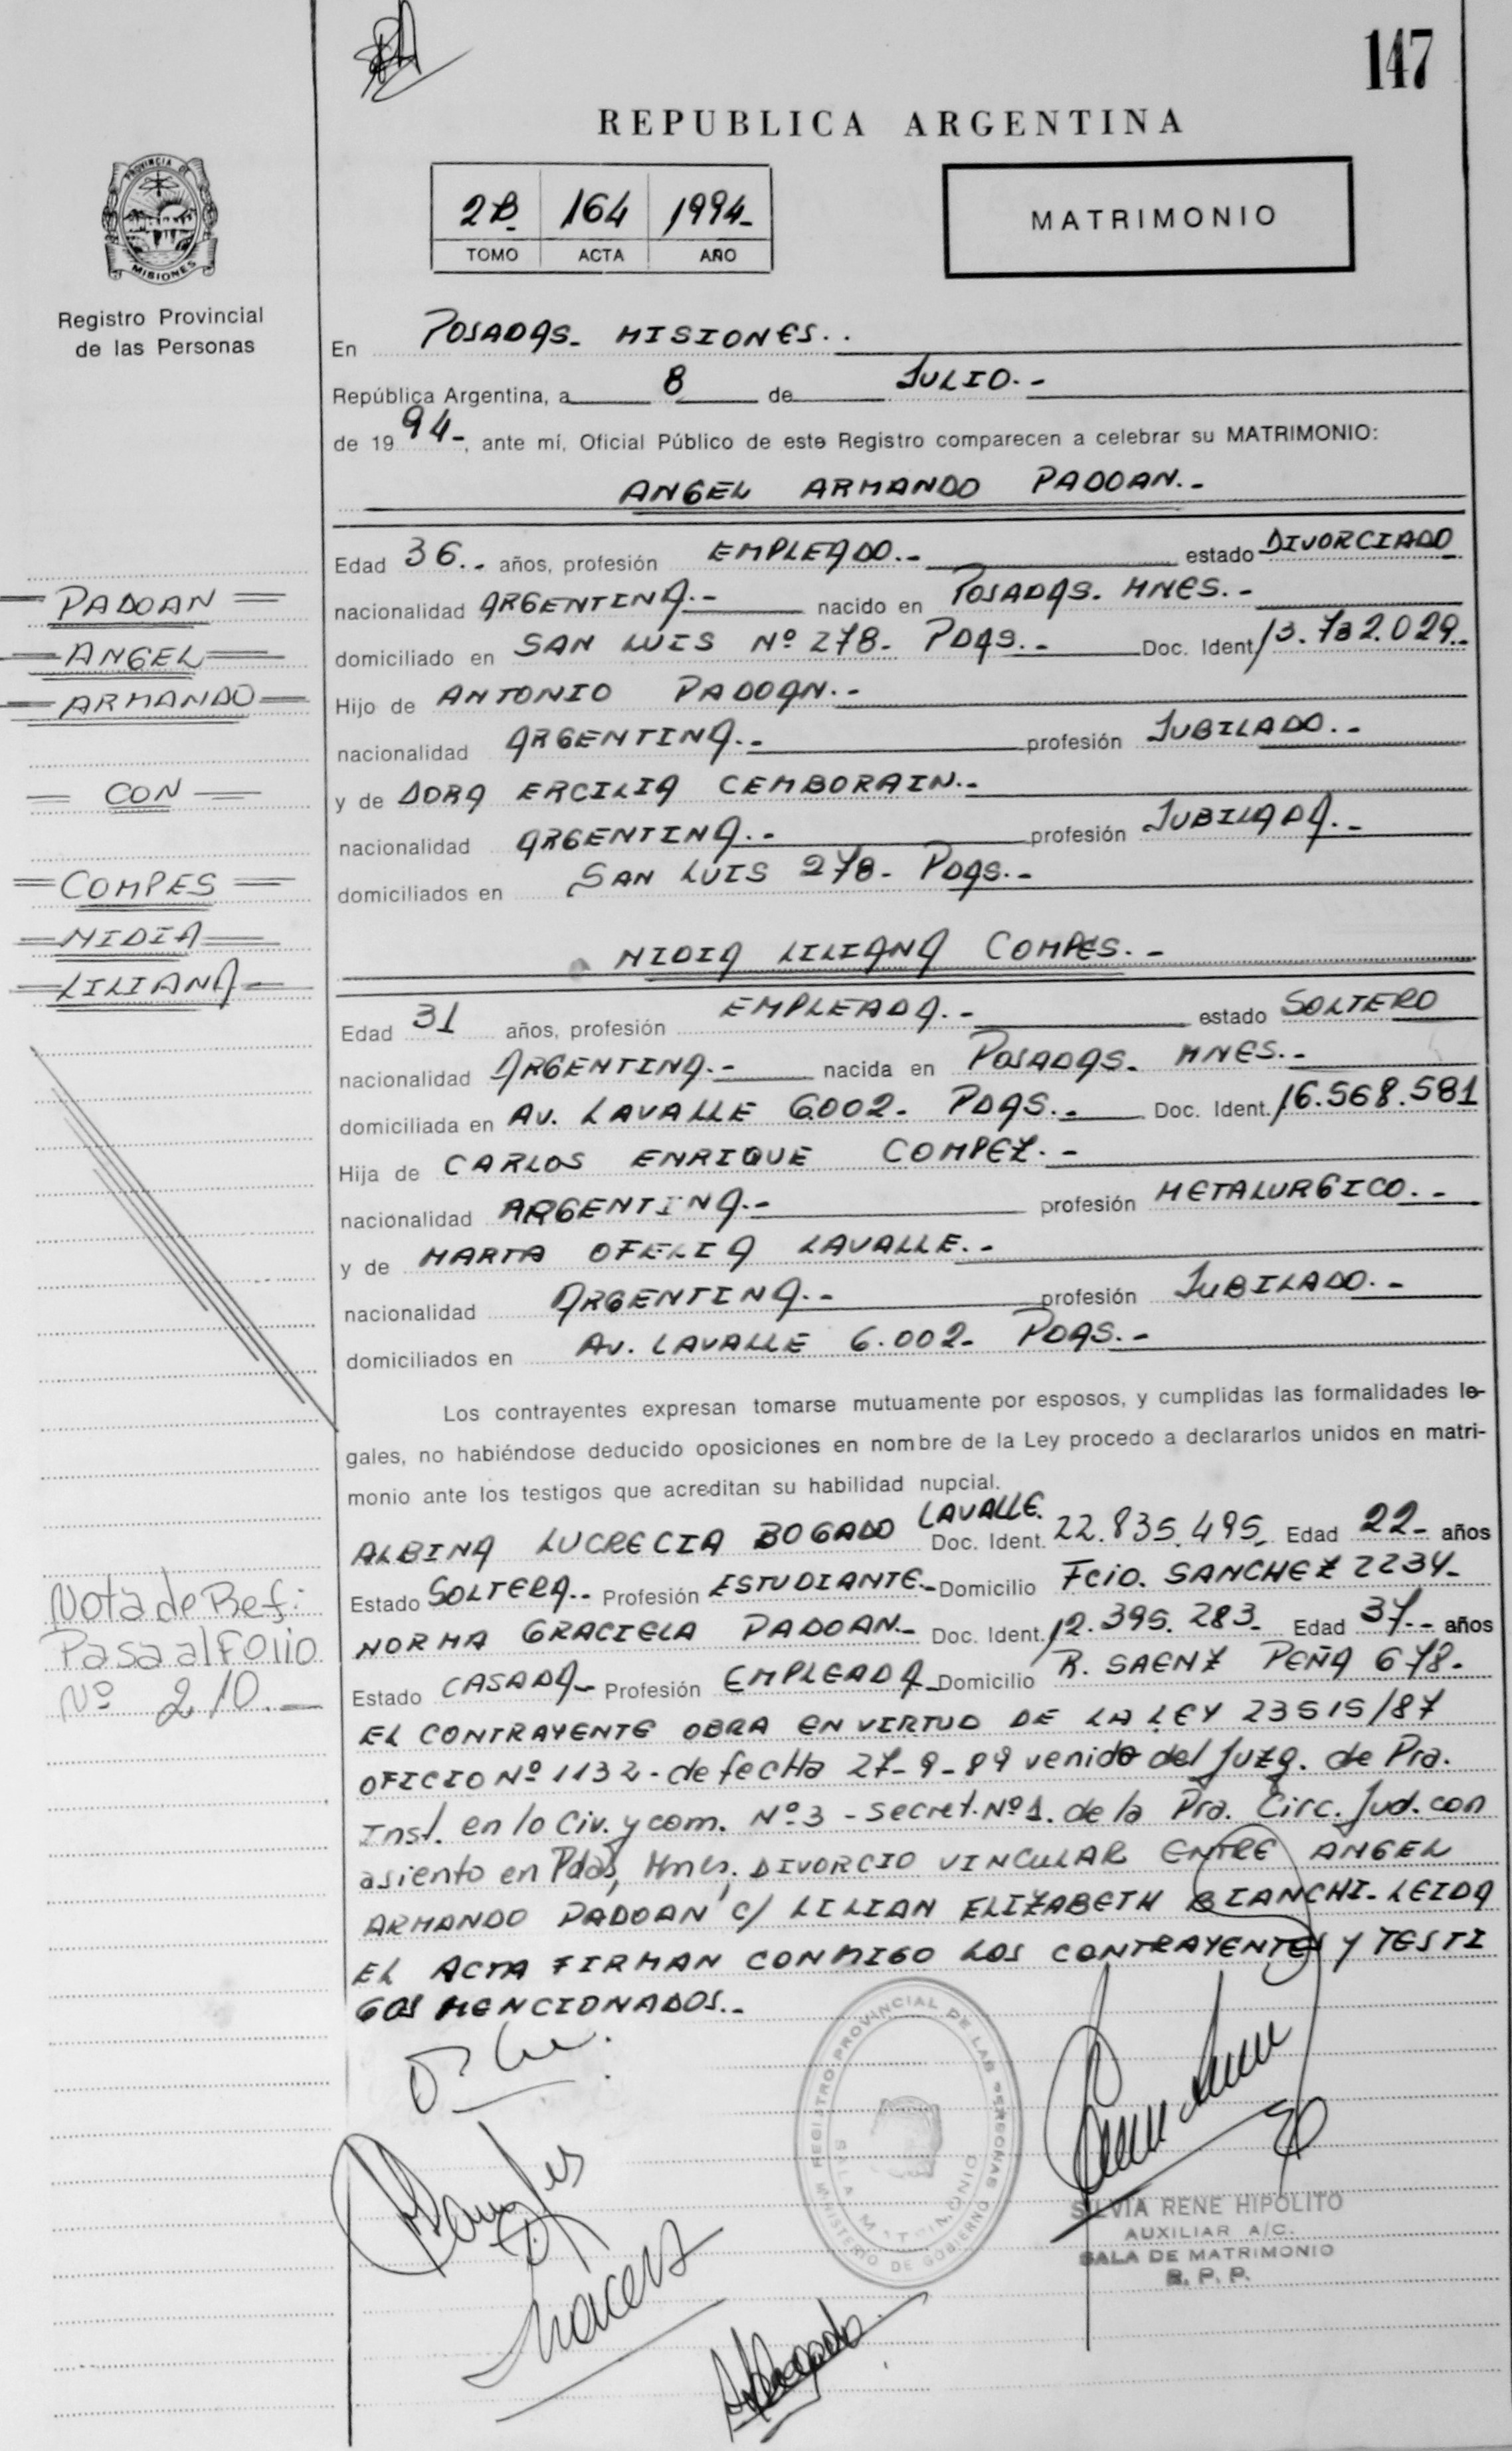 147
REPUBLICA ARGENTINA
2B. 164 1994-
TOMO ACTA AÑO
MATRIMONIO
PROVINCIA DE
MISIONES
Registro Provincial
de las Personas
En POSADAS- MISIONES..
República Argentina, a 8 de JULIO.-
de 1994-, ante mí, Oficial Público de este Registro comparecen a celebrar su MATRIMONIO:
ANGEL ARMANDO PADOAN.-
Edad 36.. años, profesión EMPLEADO.- estado DIVORCIADO
nacionalidad ARGENTINA.- nacido en POSADAS. MNES.-
domiciliado en SAN LUIS Nº 278- PDAS.- Doc. Ident. 13.732.029.-
Hijo de ANTONIO PADOAN.-
nacionalidad ARGENTINA.- profesión JUBILADO.-
y de DORA ERCILIA CEMBORAIN.-
nacionalidad ARGENTINA.- profesión JUBILADA.-
domiciliados en SAN LUIS 278- PDAS.-
NIDIA LILIANA COMPES.-
Edad 31 años, profesión EMPLEADA.- estado SOLTERO
nacionalidad ARGENTINA.- nacida en POSADAS- MNES.-
domiciliada en AV. LAVALLE 6002- PDAS.- Doc. Ident. 16.568.581
Hija de CARLOS ENRIQUE COMPEZ.-
nacionalidad ARGENTINA.- profesión METALURGICO.-
y de MARTA OFELIA LAVALLE.-
nacionalidad ARGENTINA.- profesión JUBILADO.-
domiciliados en AV. LAVALLE 6.002- PDAS.-
Los contrayentes expresan tomarse mutuamente por esposos, y cumplidas las formalidades le-
gales, no habiéndose deducido oposiciones en nombre de la Ley procedo a declararlos unidos en matri-
monio ante los testigos que acreditan su habilidad nupcial.
ALBINA LUCRECIA BOGADO LAVALLE. Doc. Ident. 22.835.495- Edad 22- años
Estado SOLTERA.- Profesión ESTUDIANTE- Domicilio Fcio. SANCHEZ 2234-
NORMA GRACIELA PADOAN.- Doc. Ident. 12.395.283- Edad 37.- años
Estado CASADA- Profesión EMPLEADA- Domicilio R. SAENZ PEÑA 678-
EL CONTRAYENTE OBRA EN VIRTUD DE LA LEY 23515/87
OFICIO Nº 1132- de fecha 27-9-89 venido del Juzg. de Pra.
Inst. en lo Civ. y com. Nº 3 - Secret. Nº 1. de la Pra. Circ. Jud. con
asiento en Pdas, Mnes. DIVORCIO VINCULAR ENTRE ANGEL
ARMANDO PADOAN c/ LILIAN ELIZABETH BIANCHI- LEIDA
EL ACTA FIRMAN CONMIGO LOS CONTRAYENTES Y TESTI
GOS MENCIONADOS.-
PADOAN
ANGEL
ARMANDO
CON
COMPES
NIDIA
LILIANA
Nota de Ref:
Pasa al Folio
Nº 210.-
REGISTRO PROVINCIAL DE LAS PERSONAS
MINISTERIO DE GOBIERNO
SALA MATRIMONIO
SILVIA RENE HIPOLITO
AUXILIAR A/C.
SALA DE MATRIMONIO
R. P. P.